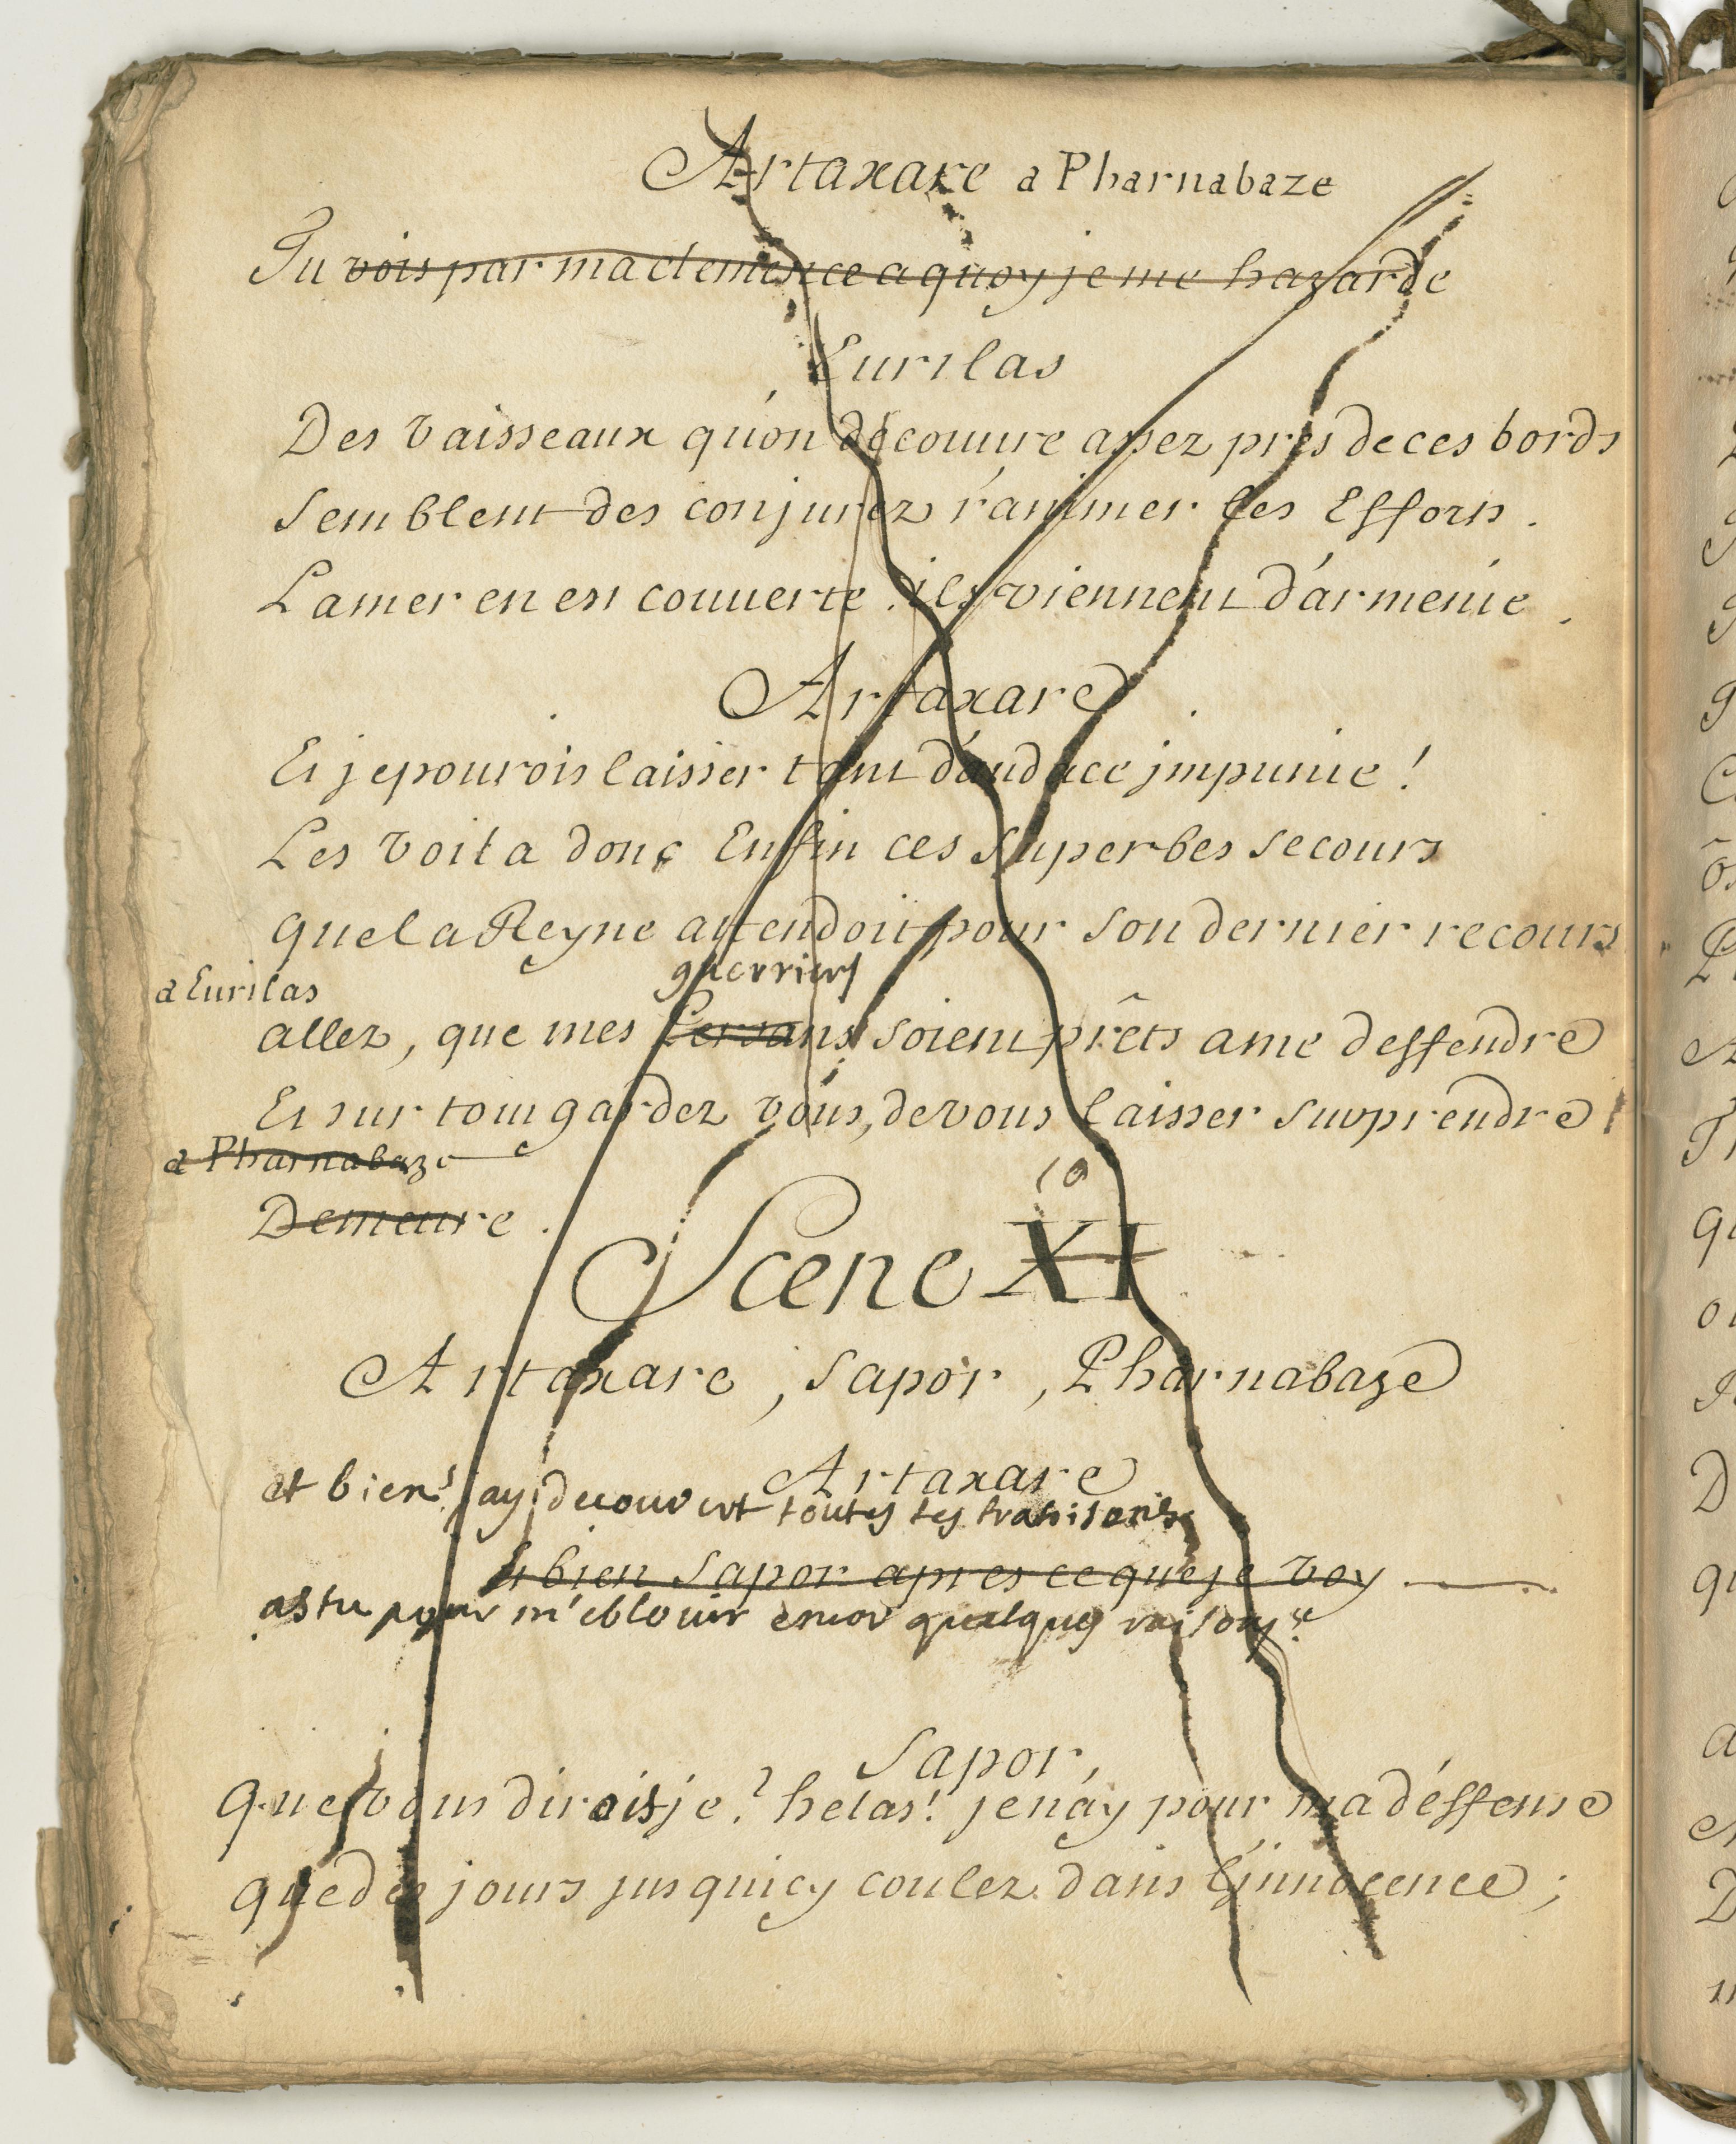 Artaxare a Pharnabaze
Tu vois par ma clemence a quoy je me hazarde
Eurilas
Des Vaisseaux qu'on découure assez pres de ces bords
Semblent des conjurez r'animer les Efforts.
La mer en est couuerte. ils viennent d'armenie.
Artaxare
Et je pourois laisser tant d'audace impunie!
Les Voila donc Enfin ces superbes secours
que la Reyne attendoit pour son dernier recours
guerriers
a Eurilas
allez, que mes Persans soient prêts a me deffendre
Et sur tout gardez vous, de vous laisser surprendre!
a Pharnabaze
Demeure.
10
Scene XI
Artaxare, Sapor, Pharnabaze
Artaxare
et bien! jay decouvert toutes tes trahisons
Et bien Sapor apres ce que je voy
as tu pour m'eblouir encor quelques raisons?
Sapor,
Que vous dirois je? helas! je n'ay pour ma déffense
que des jours jusqu'icy coulez dans l'innocence;